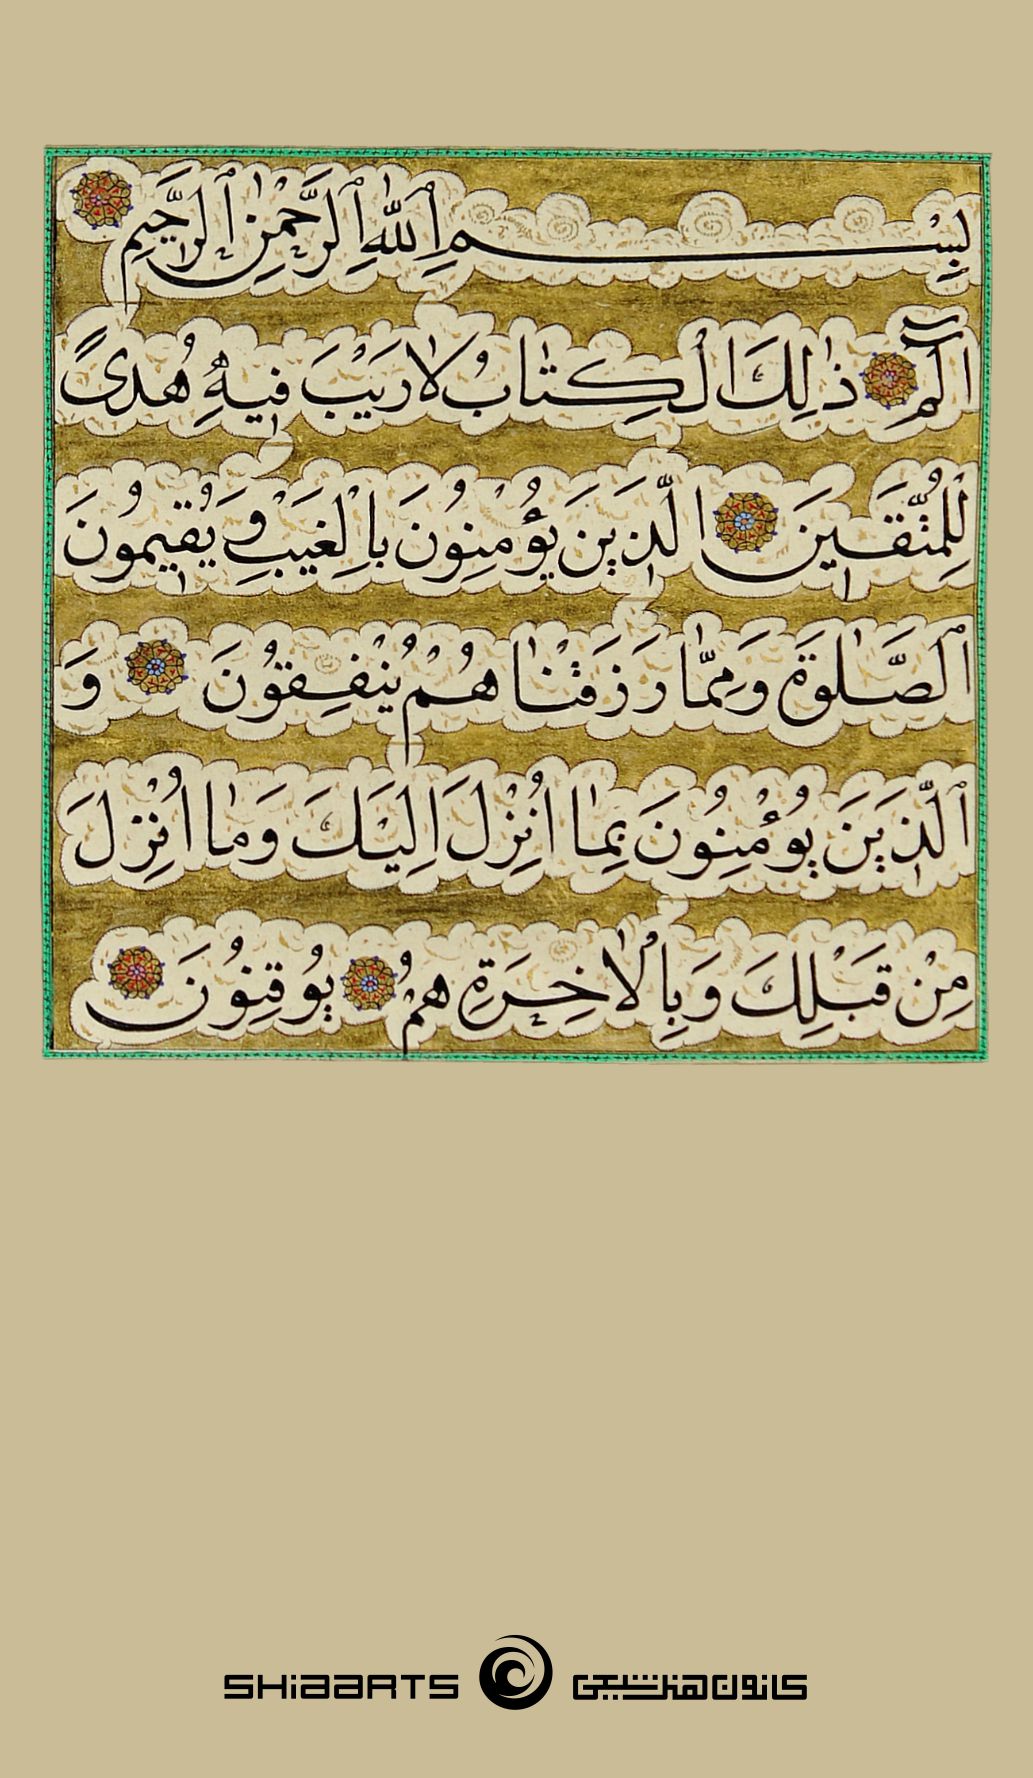 بِسْمِ اللّٰهِ الرَّحْمٰنِ الرَّحٖيمِ
الٓمٓ ذٰلِكَ الْكِتَابُ لَا رَيْبَ فٖيهِ هُدًى
لِلْمُتَّقٖينَ اَلَّذٖينَ يُؤْمِنُونَ بِالْغَيْبِ وَيُقٖيمُونَ
الصَّلٰوةَ وَمِمَّا رَزَقْنَاهُمْ يُنْفِقُونَ وَ
الَّذٖينَ يُؤْمِنُونَ بِمَا اُنْزِلَ اِلَيْكَ وَمَا اُنْزِلَ
مِنْ قَبْلِكَ وَبِالْاٰخِرَةِ هُمْ يُوقِنُونَ
SHIAARTS کانون هنر شیعی